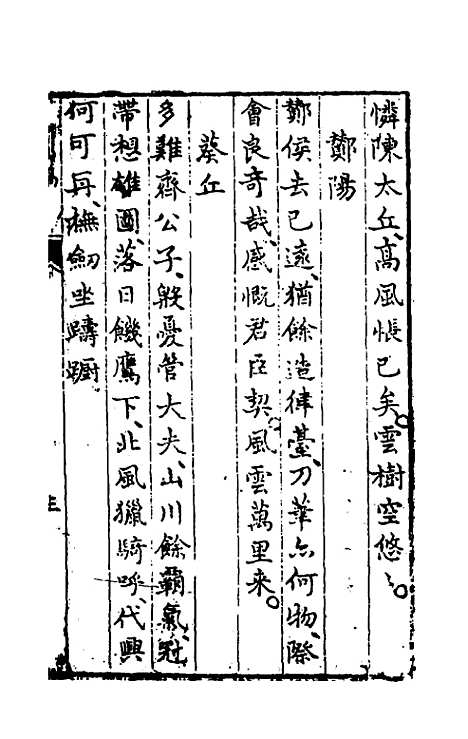 憐陳太丘、高風悵已矣。雲樹空悠〻。
酇陽
酇侯去已遠、猶餘造律臺、刀筆亦何物、際
會良奇哉、感慨君臣契、風雲萬里来。
葵丘
多難齊公子、殷憂管大夫、山川餘霸氣、冠
帶想雄圖、落日饑鷹下、北風獵騎呼、代興
何可再、撫劒坐躊蹰